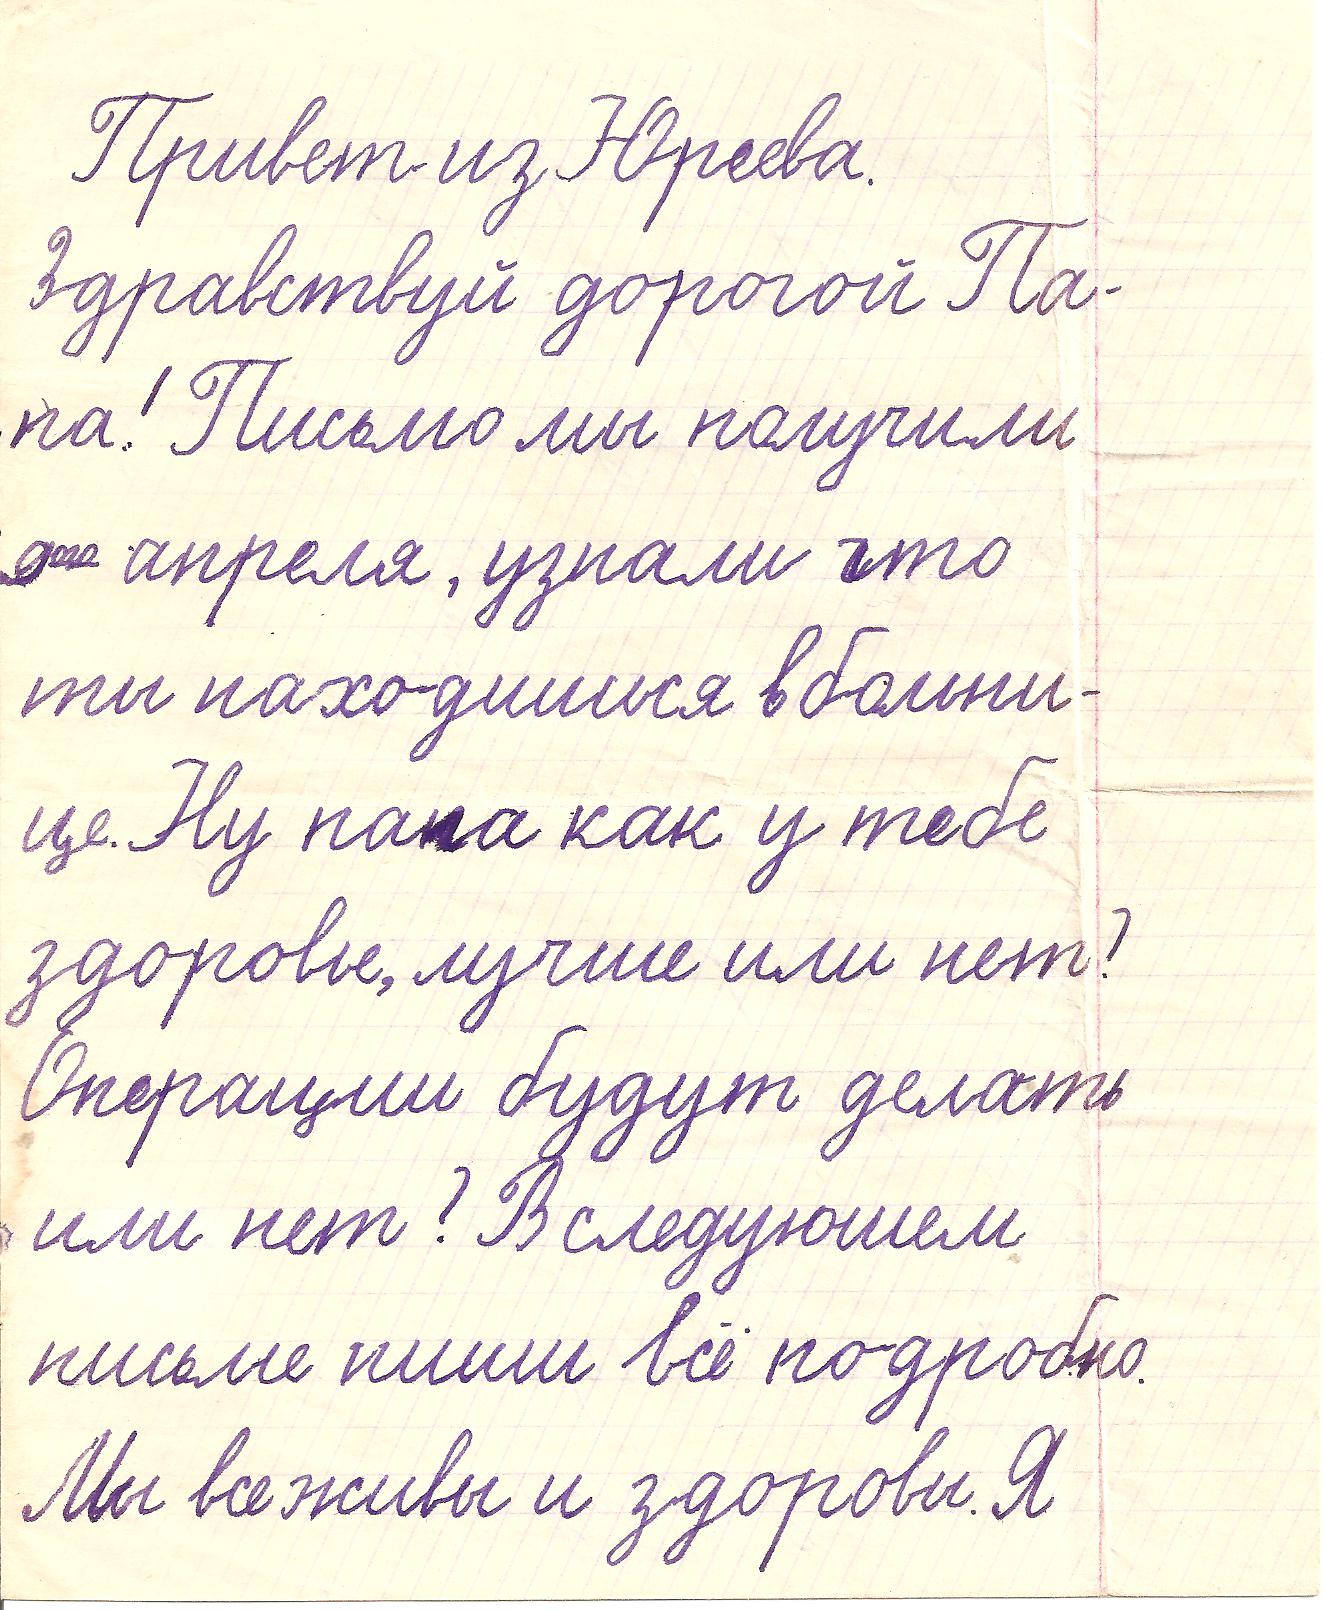 Привет из Юреева.
Здравствуй дорогой Па-
па! Письмо мы получили
апреля, узнали что
ты находишься в болни-
це. Ну папа как у тебе
здоровье, лучше или нет?
Операции будут делать
или нет? В следуюшем
письме пиши всё подробно.
Мы все живы и здоровы. Я